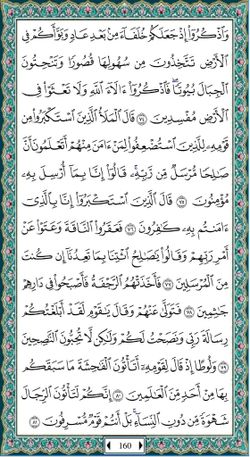 وَاذْكُرُوا إِذْ جَعَلَكُمْ خُلَفَاءَ مِنْ بَعْدِ عَادٍ وَبَوَّأَكُمْ فِي
الْأَرْضِ تَتَّخِذُونَ مِنْ سُهُولِهَا قُصُورًا وَتَنْحِتُونَ
الْجِبَالَ بُيُوتًا ۖ فَاذْكُرُوا آلَاءَ اللَّهِ وَلَا تَعْثَوْا فِي
الْأَرْضِ مُفْسِدِينَ ٧٤ قَالَ الْمَلَأُ الَّذِينَ اسْتَكْبَرُوا مِنْ
قَوْمِهِ لِلَّذِينَ اسْتُضْعِفُوا لِمَنْ آمَنَ مِنْهُمْ أَتَعْلَمُونَ أَنَّ
صَالِحًا مُرْسَلٌ مِنْ رَبِّهِ ۚ قَالُوا إِنَّا بِمَا أُرْسِلَ بِهِ
مُؤْمِنُونَ ٧٥ قَالَ الَّذِينَ اسْتَكْبَرُوا إِنَّا بِالَّذِي
آمَنْتُمْ بِهِ كَافِرُونَ ٧٦ فَعَقَرُوا النَّاقَةَ وَعَتَوْا عَنْ
أَمْرِ رَبِّهِمْ وَقَالُوا يَا صَالِحُ ائْتِنَا بِمَا تَعِدُنَا إِنْ كُنْتَ
مِنَ الْمُرْسَلِينَ ٧٧ فَأَخَذَتْهُمُ الرَّجْفَةُ فَأَصْبَحُوا فِي دَارِهِمْ
جَاثِمِينَ ٧٨ فَتَوَلَّىٰ عَنْهُمْ وَقَالَ يَا قَوْمِ لَقَدْ أَبْلَغْتُكُمْ
رِسَالَةَ رَبِّي وَنَصَحْتُ لَكُمْ وَلَٰكِنْ لَا تُحِبُّونَ النَّاصِحِينَ
٧٩ وَلُوطًا إِذْ قَالَ لِقَوْمِهِ أَتَأْتُونَ الْفَاحِشَةَ مَا سَبَقَكُمْ
بِهَا مِنْ أَحَدٍ مِنَ الْعَالَمِينَ ٨٠ إِنَّكُمْ لَتَأْتُونَ الرِّجَالَ
شَهْوَةً مِنْ دُونِ النِّسَاءِ ۚ بَلْ أَنْتُمْ قَوْمٌ مُسْرِفُونَ ٨١
160